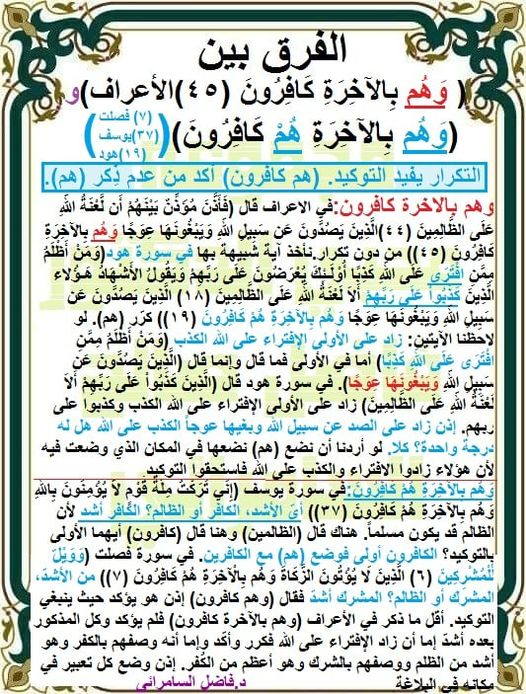 الفرق بين
( وَهُم بِالآخِرَةِ كَافِرُونَ (٤٥)الأعراف)و
(وَهُم بِالآخِرَةِ هُمْ كَافِرُونَ)((٧) فصلت (٣٧)يوسف (١٩)هود)
التكرار يفيد التوكيد. (هم كافرون) أكد من عدم ذِكر (هم).
وهم بالاخرة كافرون:في الاعراف قال (فَأَذَّنَ مُؤَذِّنٌ بَيْنَهُمْ أَن لَّعْنَةُ اللّهِ
عَلَى الظَّالِمِينَ (٤٤)الَّذِينَ يَصُدُّونَ عَن سَبِيلِ اللّهِ وَيَبْغُونَهَا عِوَجًا وَهُم بِالآخِرَةِ
كَافِرُونَ (٤٥)) من دون تكرار.نأخذ آية شبيهة بها في سورة هود(وَمَنْ أَظْلَمُ
مِمَّنِ افْتَرَى عَلَى اللّهِ كَذِبًا أُوْلَئِكَ يُعْرَضُونَ عَلَى رَبِّهِمْ وَيَقُولُ الأَشْهَادُ هَؤُلاء
الَّذِينَ كَذَبُواْ عَلَى رَبِّهِمْ أَلاَ لَعْنَةُ اللّهِ عَلَى الظَّالِمِينَ (١٨) الَّذِينَ يَصُدُّونَ عَن
سَبِيلِ اللّهِ وَيَبْغُونَهَا عِوَجًا وَهُم بِالآخِرَةِ هُمْ كَافِرُونَ (١٩)) كرر (هم). لو
لاحظنا الآيتين: زاد على الأولى الإفتراء على الله الكذب (وَمَنْ أَظْلَمُ مِمَّنِ
افْتَرَى عَلَى اللّهِ كَذِبًا) أما في الأولى فما قال وإنما قال (الَّذِينَ يَصُدُّونَ عَن
سَبِيلِ اللّهِ وَيَبْغُونَهَا عِوَجًا). في سورة هود قال (الَّذِينَ كَذَبُواْ عَلَى رَبِّهِمْ أَلاَ
لَعْنَةُ اللّهِ عَلَى الظَّالِمِينَ) زاد على الأولى الإفتراء على الله الكذب وكذبوا على
ربهم. إذن زاد على الصد عن سبيل الله وبغيها عوجاً الكذب على الله هل له
درجة واحدة؟ كلا. لو أردنا أن نضع (هم) نضعها في المكان الذي وضعت فيه
لأن هؤلاء زادوا الافتراء والكذب على الله فاستحقوا التوكيد.
وَهُم بِالآخِرَةِ هُمْ كَافِرُونَ:في سورة يوسف (إِنِّي تَرَكْتُ مِلَّةَ قَوْمٍ لاَّ يُؤْمِنُونَ بِاللّهِ
وَهُم بِالآخِرَةِ هُمْ كَافِرُونَ (٣٧)) أيّ الأشد، الكافر أو الظالم؟ الكافر أشد لأن
الظالم قد يكون مسلماً. هناك قال (الظالمين) وهنا قال (كافرون) أيهما الأولى
بالتوكيد؟ الكافرون أولى فوضع (هم) مع الكافرين. في سورة فصلت (وَوَيْلٌ
لِّلْمُشْرِكِينَ (٦) الَّذِينَ لَا يُؤْتُونَ الزَّكَاةَ وَهُم بِالْآخِرَةِ هُمْ كَافِرُونَ (٧)) من الأشدّ،
المشرك أو الظالم؟ المشرك أشدّ فقال (وهم كافرون) إذن هو يؤكد حيث ينبغي
التوكيد. أقل ما ذكر في الأعراف (وهم بالآخرة كافرون) فلم يؤكد وكل المذكور
بعده أشدّ إما أن زاد الإفتراء على الله فكرر وأكد وإما أنه وصفهم بالكفر وهو
أشد من الظلم ووصفهم بالشرك وهو أعظم من الكُفر. إذن وضع كل تعبير في
مكانه في البلاغة د.فاضل السامرائي